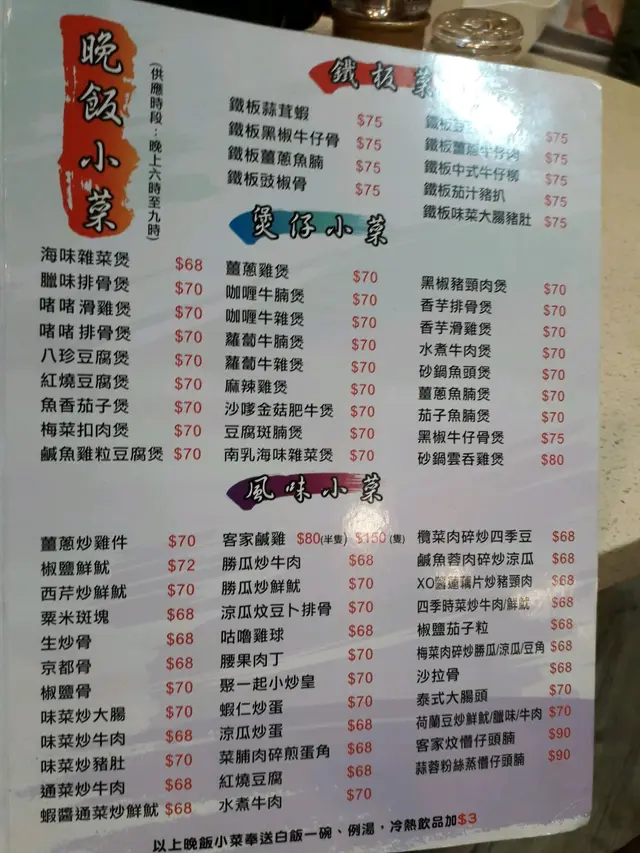 晚飯小菜
(供應時段：晚上六時至九時)
鐵板菜
鐵板蒜茸蝦 $75
鐵板黑椒牛仔骨 $75
鐵板薑蔥魚腩 $75
鐵板豉椒骨 $75
鐵板 $75
鐵板薑蔥牛仔肉 $75
鐵板中式牛仔柳 $75
鐵板茄汁豬扒 $75
鐵板味菜大腸豬肚 $75
煲仔小菜
海味雜菜煲 $68
臘味排骨煲 $70
啫啫滑雞煲 $70
啫啫排骨煲 $70
八珍豆腐煲 $70
紅燒豆腐煲 $70
魚香茄子煲 $70
梅菜扣肉煲 $70
鹹魚雞粒豆腐煲 $70
薑蔥雞煲 $70
咖喱牛腩煲 $70
咖喱牛雜煲 $70
蘿蔔牛腩煲 $70
蘿蔔牛雜煲 $70
麻辣雞煲 $70
沙嗲金菇肥牛煲 $70
豆腐斑腩煲 $70
南乳海味雜菜煲 $70
黑椒豬頸肉煲 $70
香芋排骨煲 $70
香芋滑雞煲 $70
水煮牛肉煲 $70
砂鍋魚頭煲 $70
薑蔥魚腩煲 $70
茄子魚腩煲 $70
黑椒牛仔骨煲 $75
砂鍋雲吞雞煲 $80
風味小菜
薑蔥炒雞件 $70
椒鹽鮮魷 $72
西芹炒鮮魷 $70
粟米斑塊 $68
生炒骨 $68
京都骨 $68
椒鹽骨 $70
味菜炒大腸 $70
味菜炒牛肉 $68
味菜炒豬肚 $70
通菜炒牛肉 $68
蝦醬通菜炒鮮魷 $68
客家鹹雞 $80(半隻) $150(隻)
勝瓜炒牛肉 $68
勝瓜炒鮮魷 $70
涼瓜炆豆卜排骨 $70
咕嚕雞球 $68
腰果肉丁 $70
聚一起小炒皇 $70
蝦仁炒蛋 $70
涼瓜炒蛋 $68
菜脯肉碎煎蛋角 $68
紅燒豆腐 $68
水煮牛肉 $70
欖菜肉碎炒四季豆 $68
鹹魚蓉肉碎炒涼瓜 $68
XO醬蓮藕片炒豬頸肉 $68
四季時菜炒牛肉/鮮魷 $68
椒鹽茄子粒 $68
梅菜肉碎炒勝瓜/涼瓜/豆角 $68
沙拉骨 $68
泰式大腸頭 $70
荷蘭豆炒鮮魷/臘味/牛肉 $70
客家炆懵仔頭腩 $90
蒜蓉粉絲蒸懵仔頭腩 $90
以上晚飯小菜奉送白飯一碗、例湯，冷熱飲品加$3